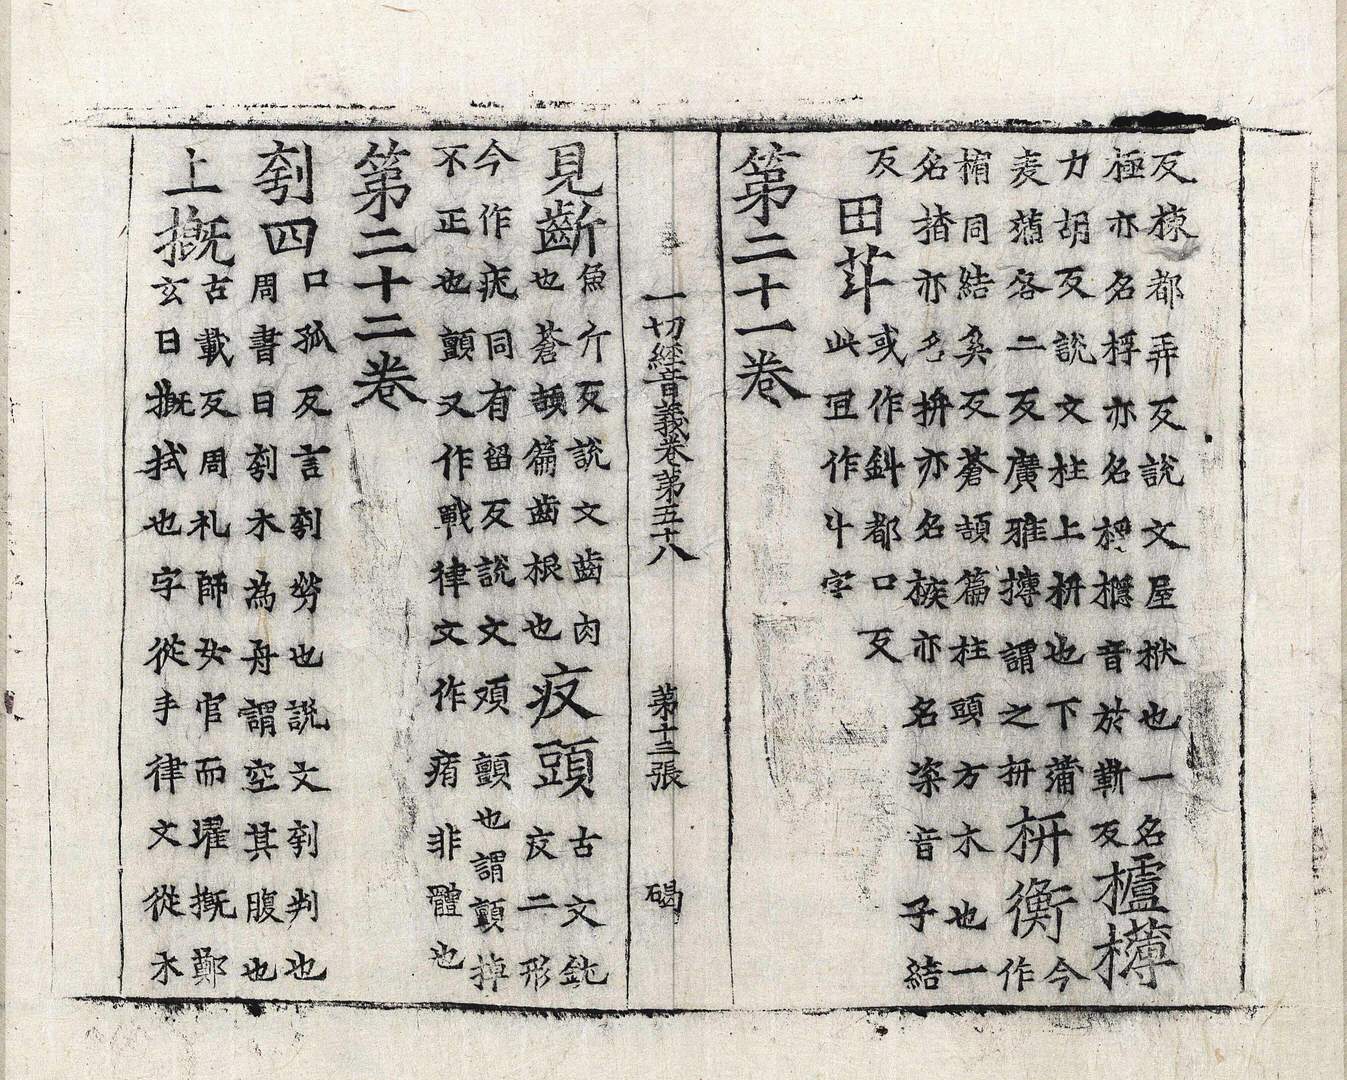 反棟都弄反說文屋栿也一名
極亦名桴亦名檼檼音於靳反
櫨欂
力胡反說文柱上枅也下蒲
麦蒲各二反廣雅欂謂之枅
枅衡
今
作
楣同結奚反蒼頡篇柱頭方木也一
名㭼亦名枅亦名㭼亦名楶音子結
反
田
或作斜都口反
此且作斗字
第二十一卷
一切經音義卷第五十八 第十三張 碣
見齗
魚斤反說文齒肉
也蒼頡篇齒根也
疫頭
古文
疫二形
今作疣同有留反說文頄 顫也謂顫掉
不正也顫又作戰律文作㾭非體也
第二十二卷
刳四
口孤反言刳勞也說文刳判也
周書曰刳木為舟謂空其腹也
上摡
古載反周礼師女官而濯摡鄭
玄曰摡拭也字從手律文從木